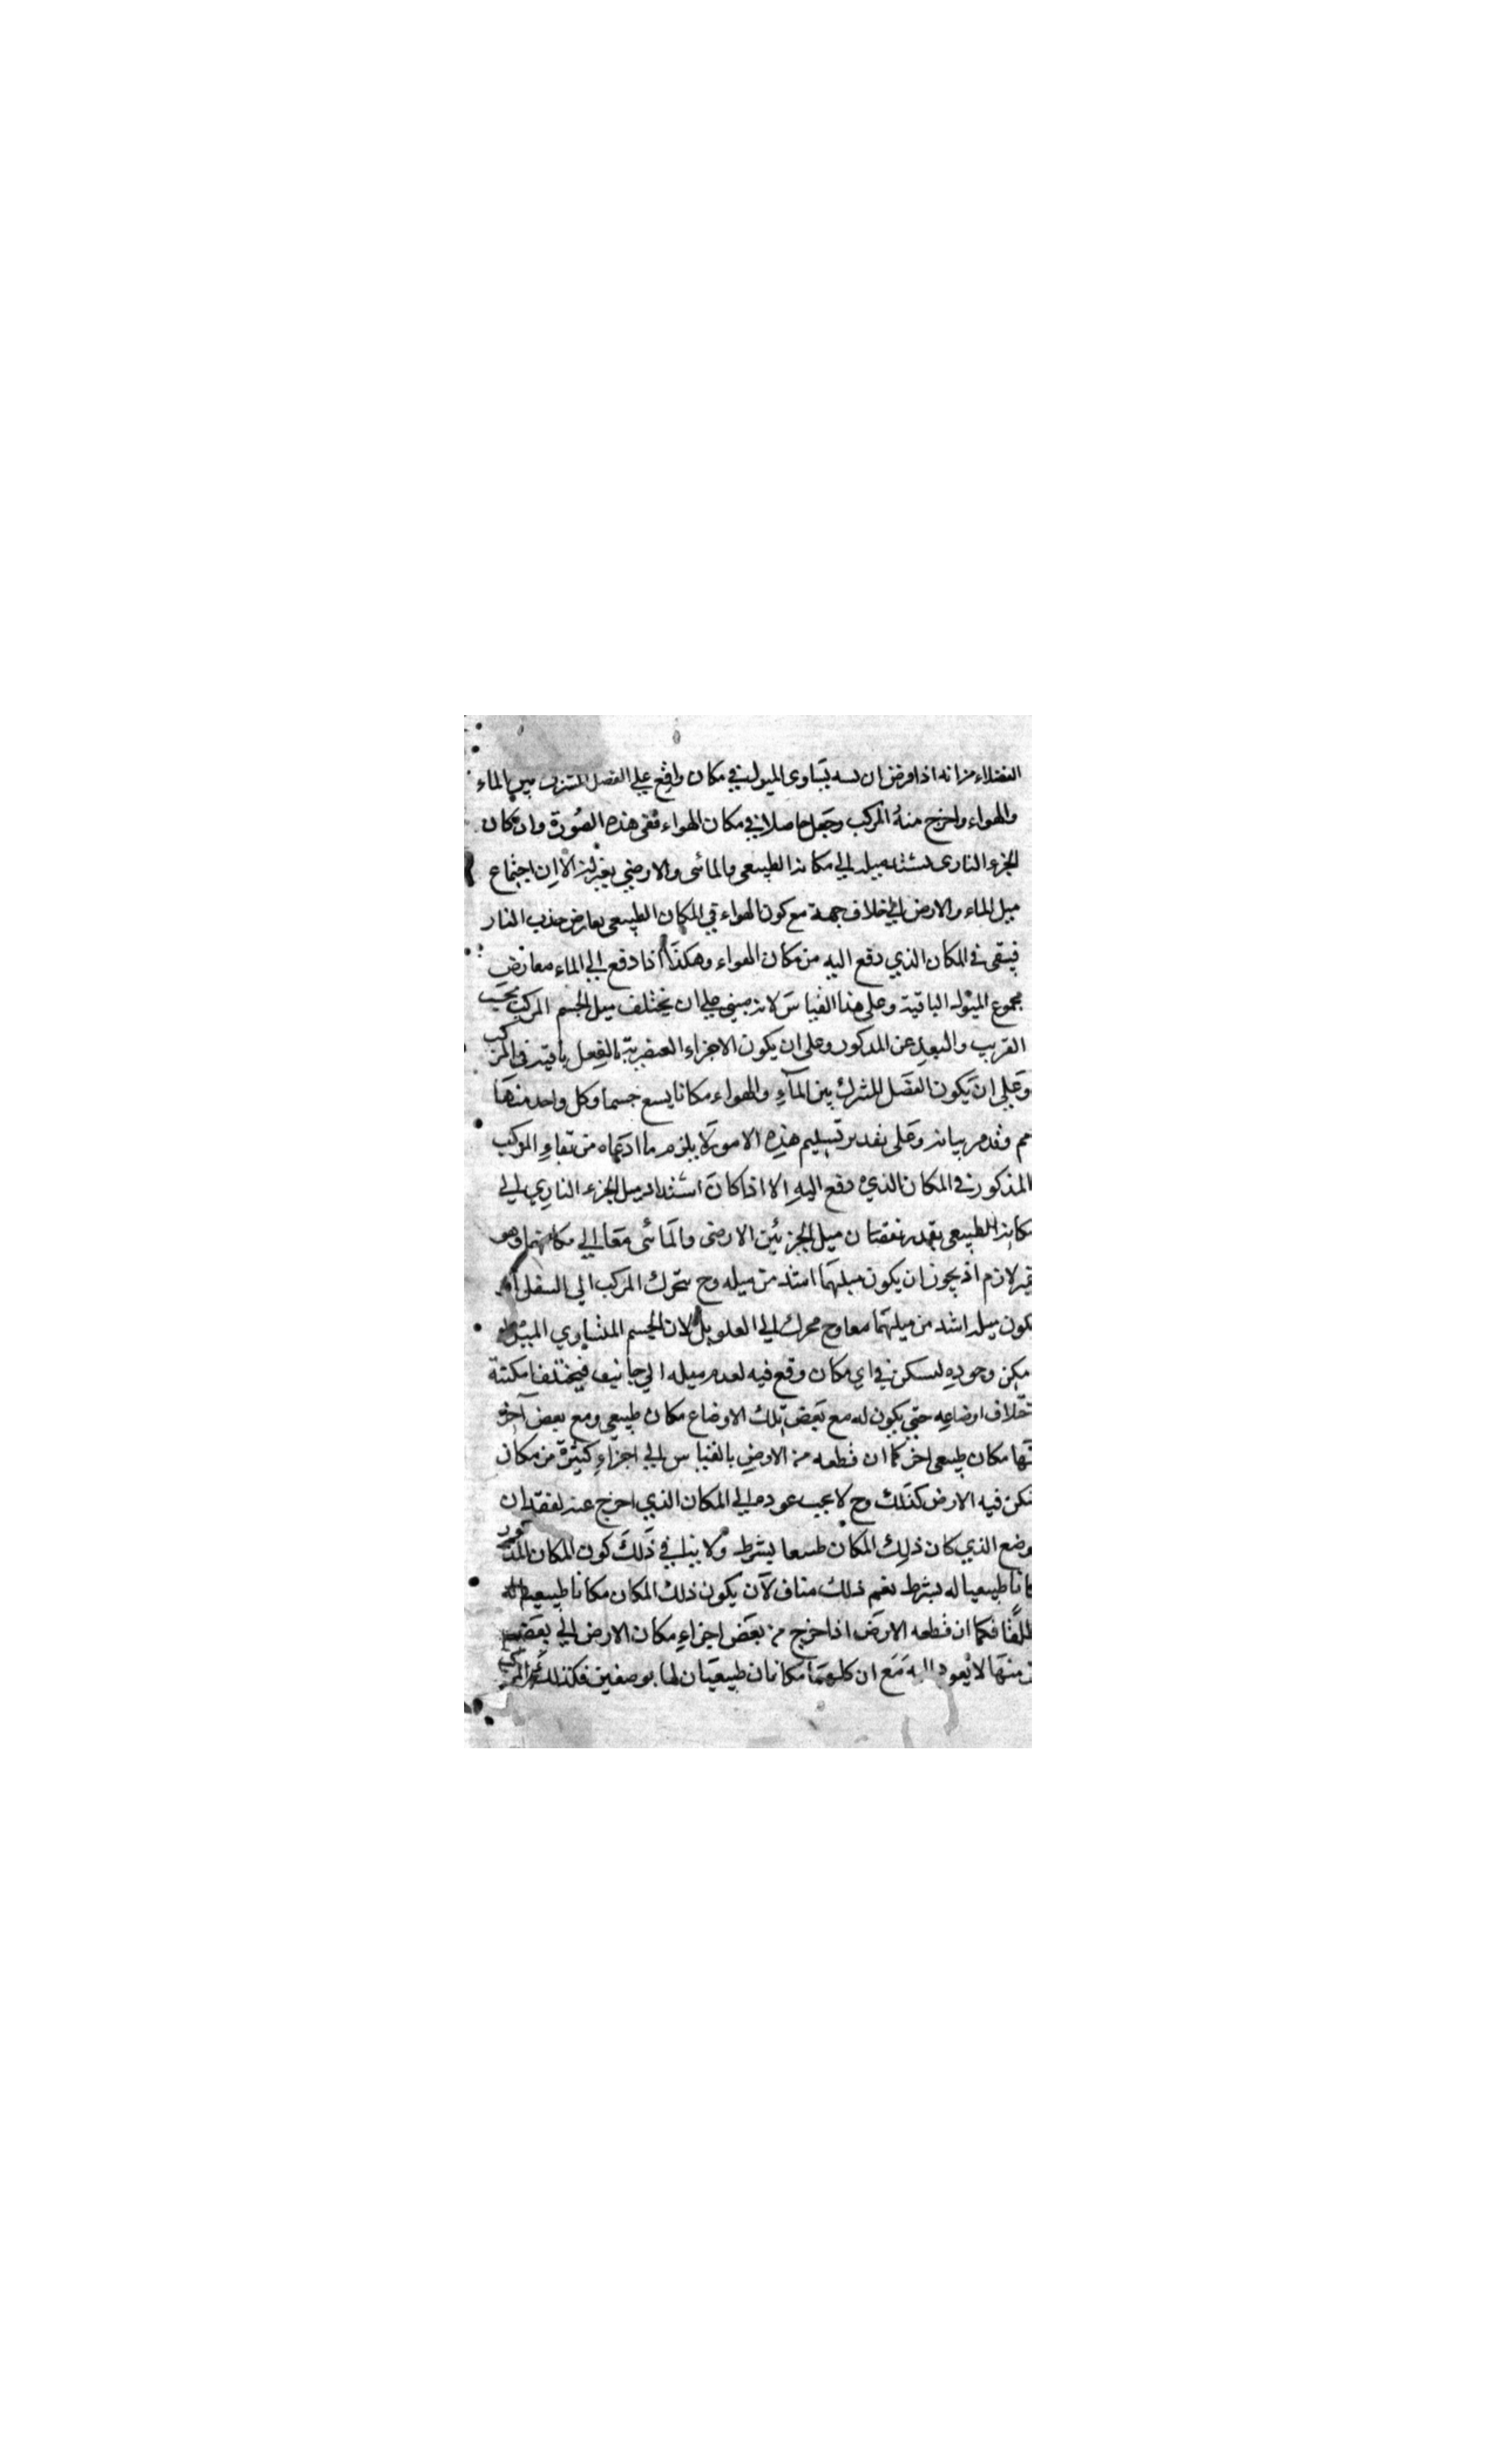 الفضلاء من انه اذا فرض ان تساوى الميول في مكان واقع على الفصل المشترك بين الماء
والهواء واخرج منه المركب وجعل حاصلا في مكان الهواء ففى هذه الصورة وان كان
الجزء النارى يشتد ميله الى مكانه الطبيعى والمائى والارضي يفتر الا ان اجتماع
ميل الماء والارض الى خلاف جهة مع كون الهواء في المكان الطبيعى يعارض جذب النار
فيبقى في المكان الذي دفع اليه من مكان الهواء وهكذا اذا دفع الى الماء معارض
مجموع الميول الباقية وعلى هذا القياس لانه مبني على ان يختلف ميل الجسم المركب بحسب
القرب والبعد عن المذكور وعلى ان يكون الاجزاء العنصرية بالفعل باقية في المركب
وعلى ان يكون الفصل المشترك بين المآء والهواء مكانا يسع جسما وكل واحد منها
مم وقد مر بيانه وعلى تقدير تسليم هذه الامور لا يلزم ما ادعاه من بقاء المركب
المذكور في المكان الذي دفع اليه الا اذا كان اشتداد ميل الجزء الناري الى
مكانه الطبيعى بقدر نقصان ميل الجزئين الارضى والمائى معا الى مكانهما وهو
غير لازم اذ يجوز ان يكون ميلهما اشد من ميله وح يتحرك المركب الى السفل او
يكون ميله اشد من ميلهما معا وح يحرك الى العلو بل لان الجسم المتساوي الميول لو
امكن وجوده لسكن في اي مكان وقع فيه لعدم ميله الى جانب فيختلف امكنته
اختلاف اوضاعه حتى يكون له مع بعض تلك الاوضاع مكان طبيعي ومع بعض آخر
منها مكان طبيعى اخر كما ان قطعه من الارض بالقياس الى اجزاء كثيرة من مكان
يمكن فيه الارض كذلك وح لا يجب عوده الى المكان الذي اخرج عنه لفقدان
وضع الذي كان ذلك المكان طبيعيا بشرط ولا ينافي ذلك كون المكان المذكور
مكانا طبيعيا له بشرط نعم ذلك مناف لان يكون ذلك المكان مكانا طبيعيا له
مطلقا فكما ان قطعه الارض اذا اخرج من بعض اجزاء مكان الارض الى بعض
منها لا يعود اليه مع ان كليهما مكانان طبيعيان لها بوصفين فكذلك المركب